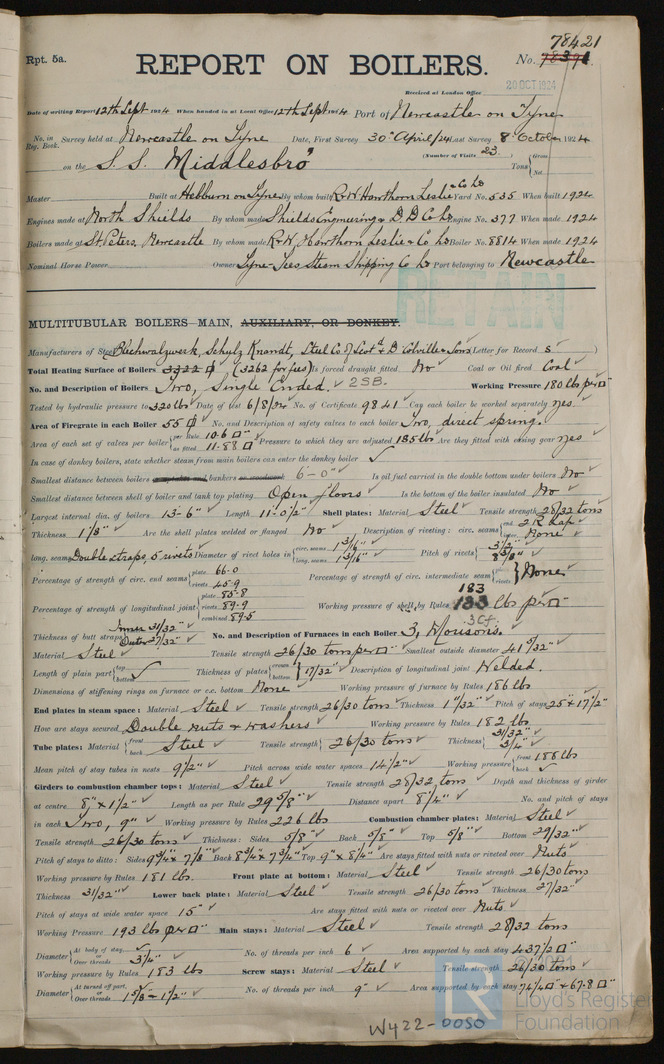 78421
Rpt. 5a.
REPORT ON BOILERS.
No. 78391.
Received at London Office
20 OCT 1924
Date of writing Report 12th Sept 1924 When handed in at Local Office 12th Sept 1924 Port of Newcastle on Tyne
No. in Reg. Book. Survey held at Newcastle on Tyne Date, First Survey 30th April/24 Last Survey 8th October 1924
(Number of Visits 23.)
on the S.S. Middlesbro' Tons { Gross Net
Master Built at Hebburn on Tyne By whom built R&W Hawthorn Leslie & Co Ld Yard No. 535 When built 1924
Engines made at North Shields By whom made Shields Engineering & D.D. Co Ld Engine No. 377 When made 1924
Boilers made at St Peters, Newcastle By whom made R&W. Hawthorn Leslie & Co Ld Boiler No. 8814 When made 1924
Nominal Horse Power Owners Tyne-Tees Steam Shipping Co Ld Port belonging to Newcastle
RETAIN
MULTITUBULAR BOILERS MAIN, AUXILIARY, OR DONKEY.
Manufacturers of Steel Blechwalzwerk, Schulz Knaudt, Steel Co of Scotd & D Colville & Sons (Letter for Record S)
Total Heating Surface of Boilers 3322 □' (3262 for fees) Is forced draught fitted No Coal or Oil fired Coal
No. and Description of Boilers Two, Single Ended. 2SB. Working Pressure 180 lbs per □"
Tested by hydraulic pressure to 320 lbs Date of test 6/8/24 No. of Certificate 9841 Can each boiler be worked separately yes
Area of Firegrate in each Boiler 55 □' No. and Description of safety valves to each boiler Two, direct spring.
Area of each set of valves per boiler { per Rule 10.6 □" as fitted 11.88 □" Pressure to which they are adjusted 185 lbs Are they fitted with easing gear yes
In case of donkey boilers, state whether steam from main boilers can enter the donkey boiler ✓
Smallest distance between boilers or uptakes and bunkers or woodwork 6'-0" Is oil fuel carried in the double bottom under boilers No
Smallest distance between shell of boiler and tank top plating Open floors Is the bottom of the boiler insulated No
Largest internal dia. of boilers 13'-6" Length 11'-0½" Shell plates: Material Steel Tensile strength 28/32 tons
Thickness 1⅛" Are the shell plates welded or flanged No Description of riveting: circ. seams { end 2 R Lap inter. None
long. seams Double straps, 5 rivets Diameter of rivet holes in { circ. seams 1 3/16" long. seams 1 3/16" Pitch of rivets { 3½" 8⅜"
Percentage of strength of circ. end seams { plate 66.0 rivets 45.9 Percentage of strength of circ. intermediate seam { plate rivets } None
Percentage of strength of longitudinal joint { plate 85.8 rivets 89.9 combined 89.5 Working pressure of shell by Rules 183 lbs per □"
Thickness of butt straps { Inner 31/32" Outer 27/32" No. and Description of Furnaces in each Boiler 3, Morisons. 3Cf
Material Steel Tensile strength 26/30 tons per □" Smallest outside diameter 41 5/32"
Length of plain part { top bottom ✓ Thickness of plates { crown bottom } 17/32" Description of longitudinal joint Welded.
Dimensions of stiffening rings on furnace or c.c. bottom None Working pressure of furnace by Rules 186 lbs
End plates in steam space: Material Steel Tensile strength 26/30 tons Thickness 1 1/32" Pitch of stays 25" × 17½"
How are stays secured Double nuts & washers Working pressure by Rules 182 lbs
Tube plates: Material { front back } Steel Tensile strength { 26/30 tons Thickness { 31/32" 3/4"
Mean pitch of stay tubes in nests 9½" Pitch across wide water spaces 14½" Working pressure { front 188 lbs back ✓
Girders to combustion chamber tops: Material Steel Tensile strength 28/32 tons Depth and thickness of girder
at centre 8" × 1½" Length as per Rule 29⅝" Distance apart 8¼" No. and pitch of stays
in each Two, 9" Working pressure by Rules 226 lbs Combustion chamber plates: Material Steel
Tensile strength 26/30 tons Thickness: Sides ⅝" Back ⅝" Top ⅝" Bottom 29/32"
Pitch of stays to ditto: Sides 9¾ × 7⅞" Back 8¾" × 7¾" Top 9" × 8¼" Are stays fitted with nuts or riveted over Nuts
Working pressure by Rules 181 lbs. Front plate at bottom: Material Steel Tensile strength 26/30 tons
Thickness 31/32" Lower back plate: Material Steel Tensile strength 26/30 tons Thickness 27/32"
Pitch of stays at wide water space 15" Are stays fitted with nuts or riveted over Nuts
Working Pressure 193 lbs per □" Main stays: Material Steel Tensile strength 28/32 tons
Diameter { At body of stay, Over threads 3¼" No. of threads per inch 6 Area supported by each stay 437½ □"
Working pressure by Rules 183 lbs Screw stays: Material Steel Tensile strength 26/30 tons
Diameter { At turned off part, Over threads 1⅝" - 1½" No. of threads per inch 9 Area supported by each stay 74¼ □" & 67.8 □"
© 2021
LR Lloyd's Register Foundation
W422-0050